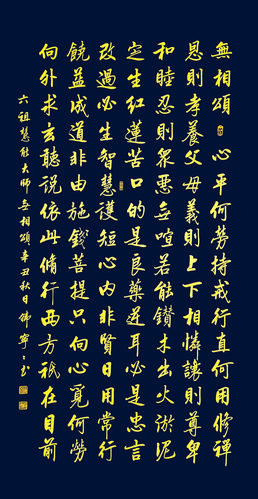 無相頌 心平何勞持戒行直何用修禪
恩則孝養父母義則上下相憐讓則尊卑
和睦忍則眾惡無喧若能鑽木出火淤泥
定生紅蓮苦口的是良藥逆耳必是忠言
改過必生智慧護短心內非賢日用常行
饒益成道非由施錢菩提只向心覓何勞
向外求玄聽說依此修行西方祇在目前
六祖慧能大師無相頌辛丑秋日佛寧